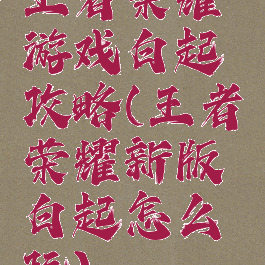 王者荣耀
游戏白起
攻略(王者
荣耀新版
白起怎么
玩)